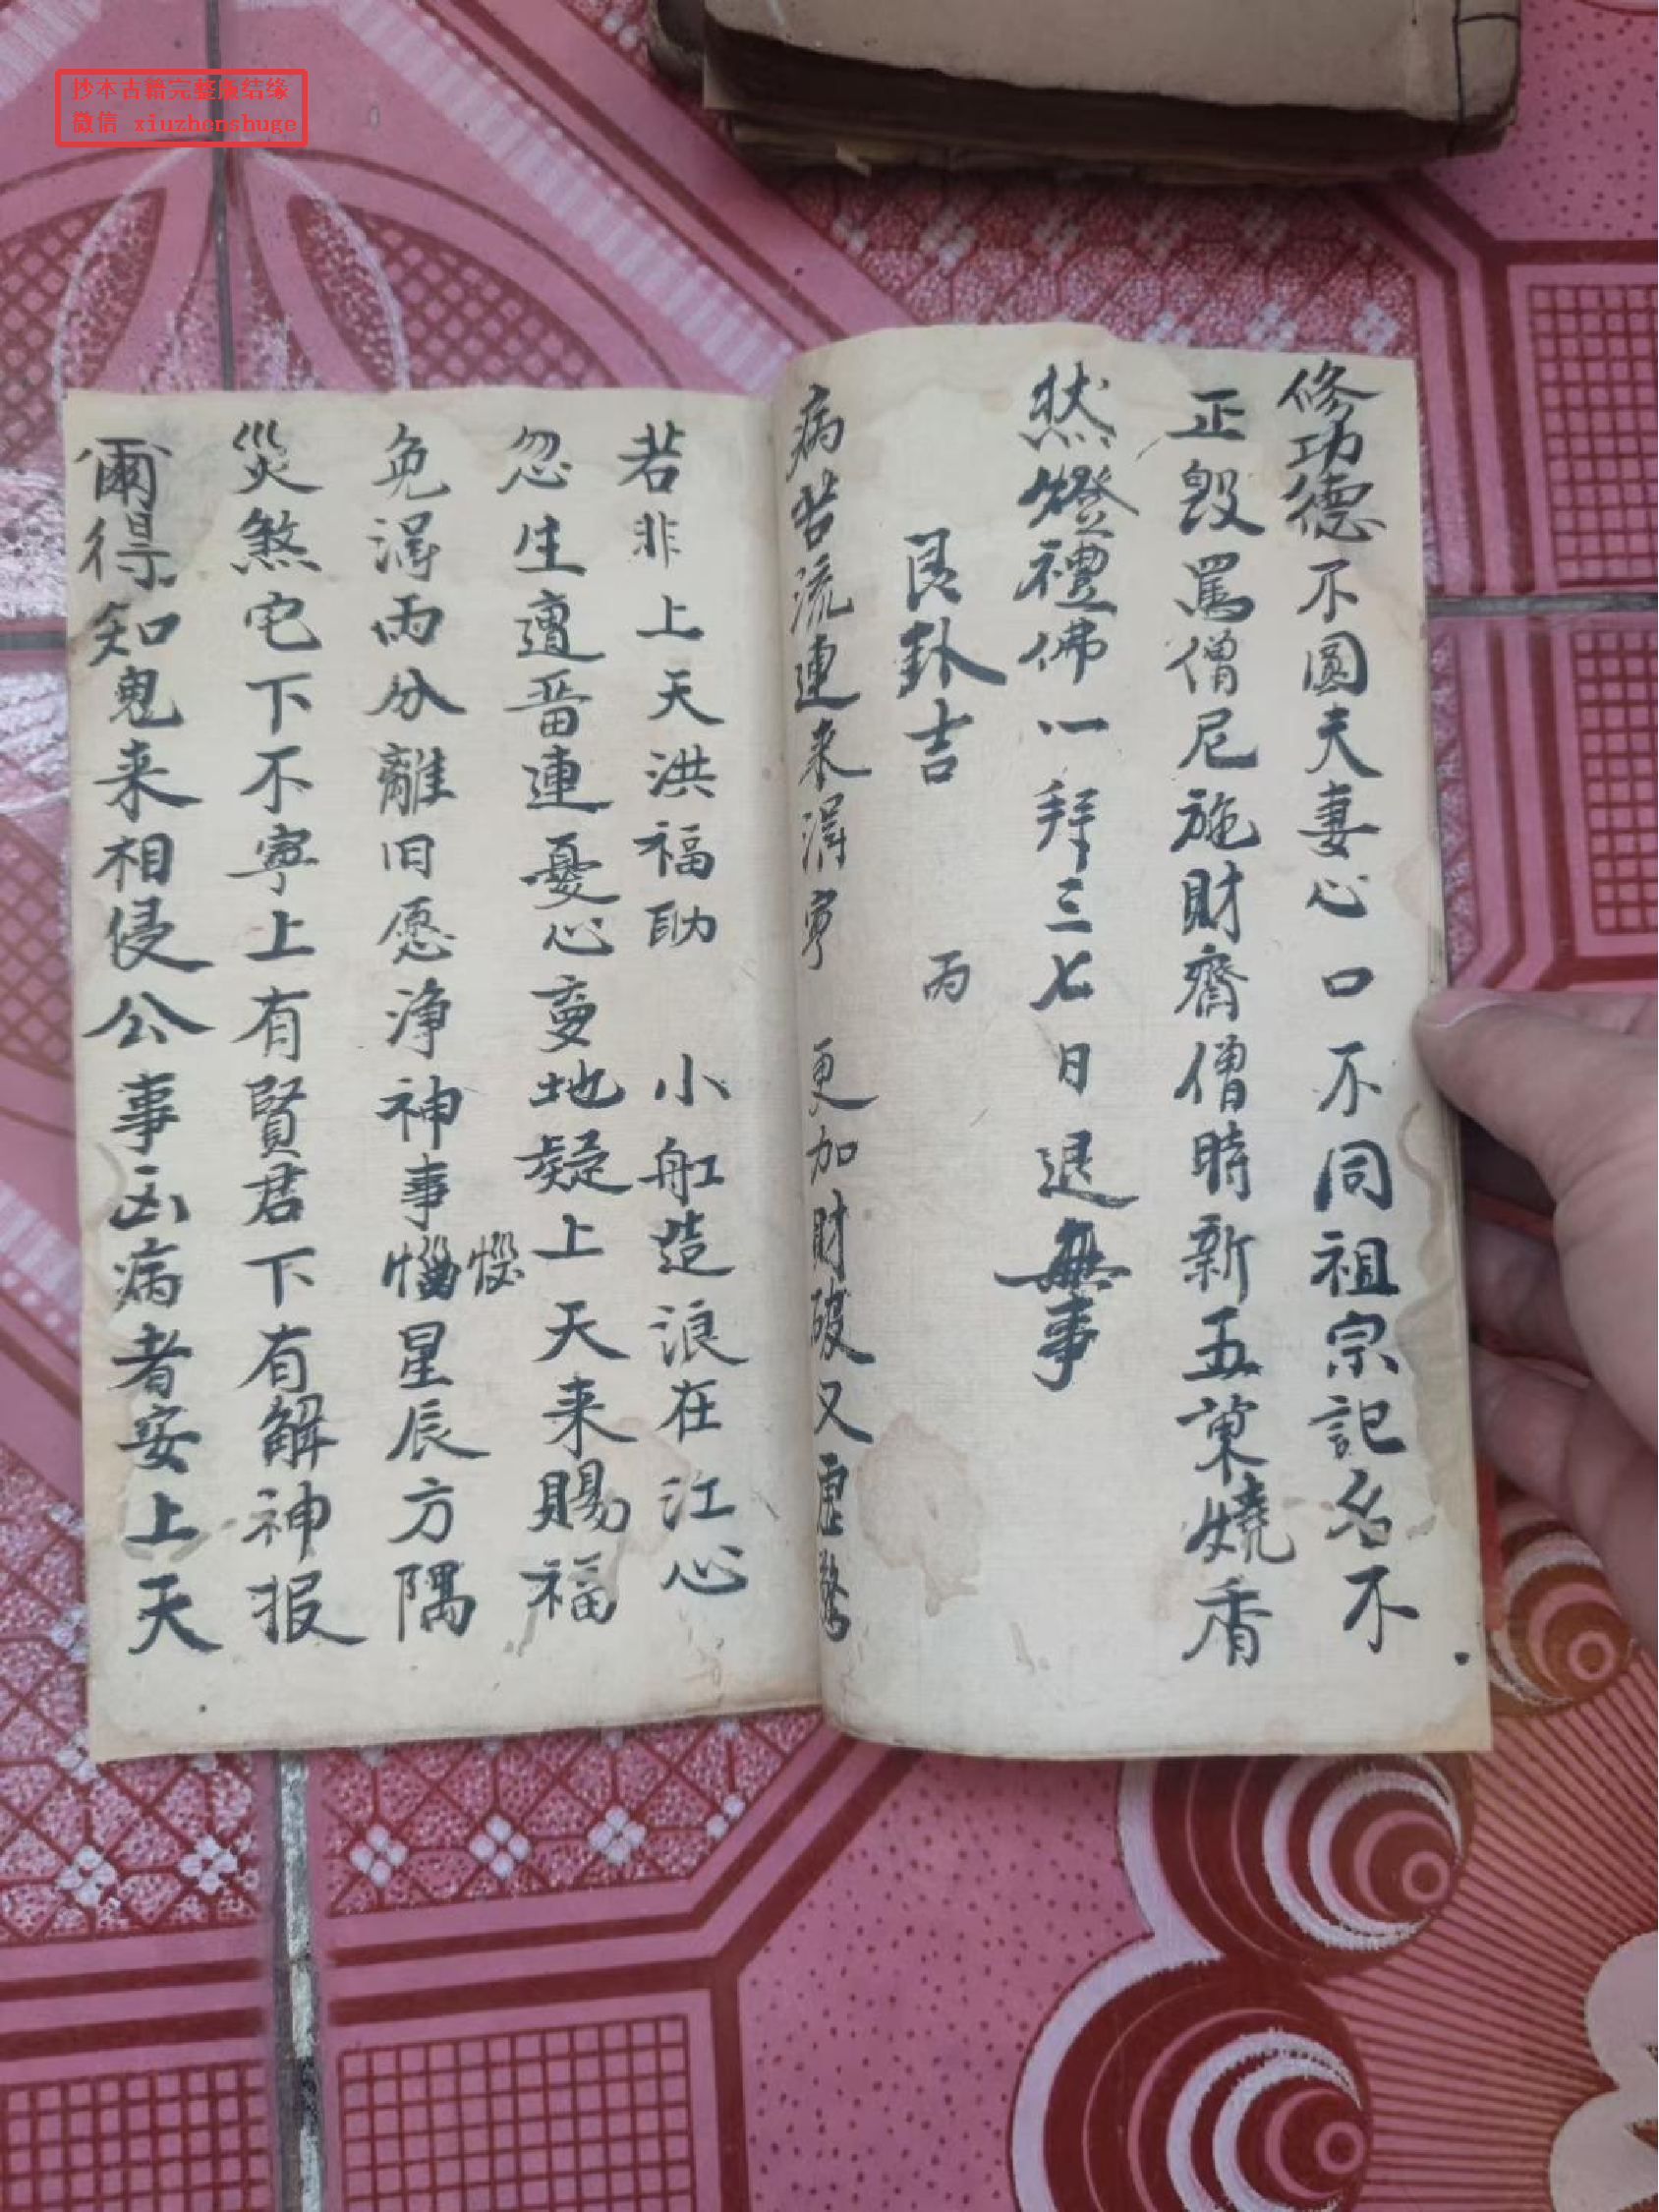 抄本古籍完整版结缘
微信 xiuzhenshuge
修功德不圓夫妻心口不同祖宗記名不
正毀罵僧尼施財齋僧時新五菓燒香
然燈禮佛一拜三七日退無事
艮卦吉 丙
病苦流連来淂寕 更加財破又虛驚
若非上天洪福助 小舡造浪在江心
忽生遭畨連憂心変地疑上天来賜福
免淂両分離旧愿净神事惱星辰方隅
災煞宅下不寧上有賢君下有解神报
爾得知鬼来相侵公事凶病者安上天